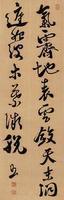 氣霽地表雲斂天末洞
庭始波木葉微脫